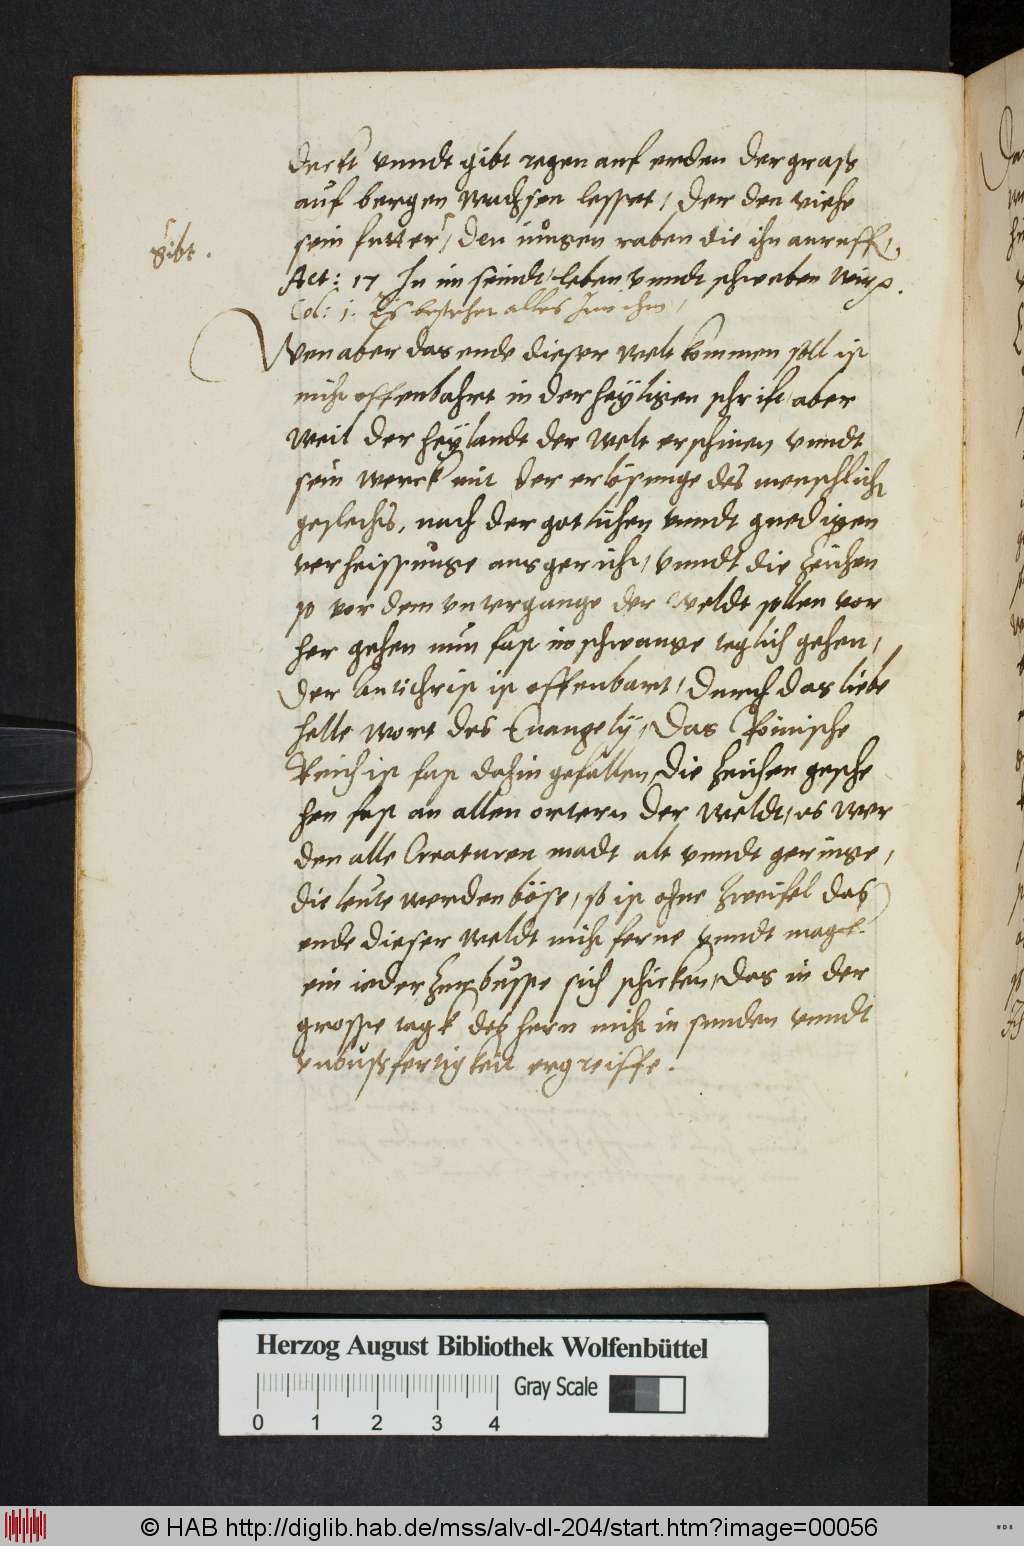 deckt vnndt gibt regen auf erden der graß
auf bergen wachsen lesset, der den viehe
sein futter, den iungen raben die ihn anruff,
gibt.
Act: 17 In im seindt, leben vnndt schweben wir.
Col: 1. Es bestehet alles Inn ihm,
Wen aber das ende dieser welt kommen soll ist
nicht offenbahrt in der heyligen schrift, aber
weil der heylandt der welt erschinen vnndt
sein werck mit der erlösunge des menschlich
geslechts, nach der gotlichen vnndt gnedigen
verheissunge ausgericht, vnndt die zeichen
so vor dem vntergange der Weldt sollen vor
her gehen nun fast im schwange teglich gehen,
Der Antichrist ist offenbart, durch das liebe
helle wort des Euangelij, Das Römische
Reich ist fast dahin gefallen, die zeichen gesche
hen fast an allen ortern der Weldt, es wer
den alle Creaturen madt alt vnndt geringe,
die leute werden böse, so ist ohne zweifel das
ende dieser Weldt nicht ferne vnndt magk
ein ieder zur busse sich schicken, das in der
grosse tagk des hern nicht in sunden vnndt
vnbußfertigkeit ergreiffe.
Herzog August Bibliothek Wolfenbüttel
Gray Scale
0 1 2 3 4
© HAB http://diglib.hab.de/mss/alv-dl-204/start.htm?image=00056